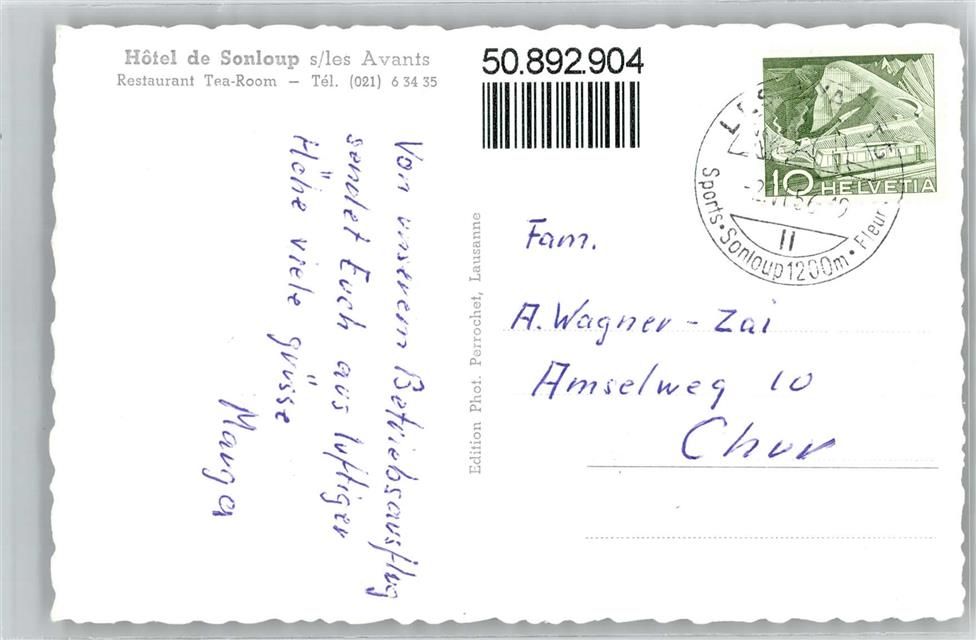 Hôtel de Sonloup s/les Avants
Restaurant Tea-Room — Tél. (021) 6 34 35
50.892.904
10 HELVETIA
Sports • Sonloup 1200m • Fleurs
II
Von unserem Betriebsausflug
sendet Euch aus luftiger
Höhe viele grüsse
Edition Phot. Perrochet, Lausanne
Fam.
A. Wagner - Zai
Amselweg 10
Chur